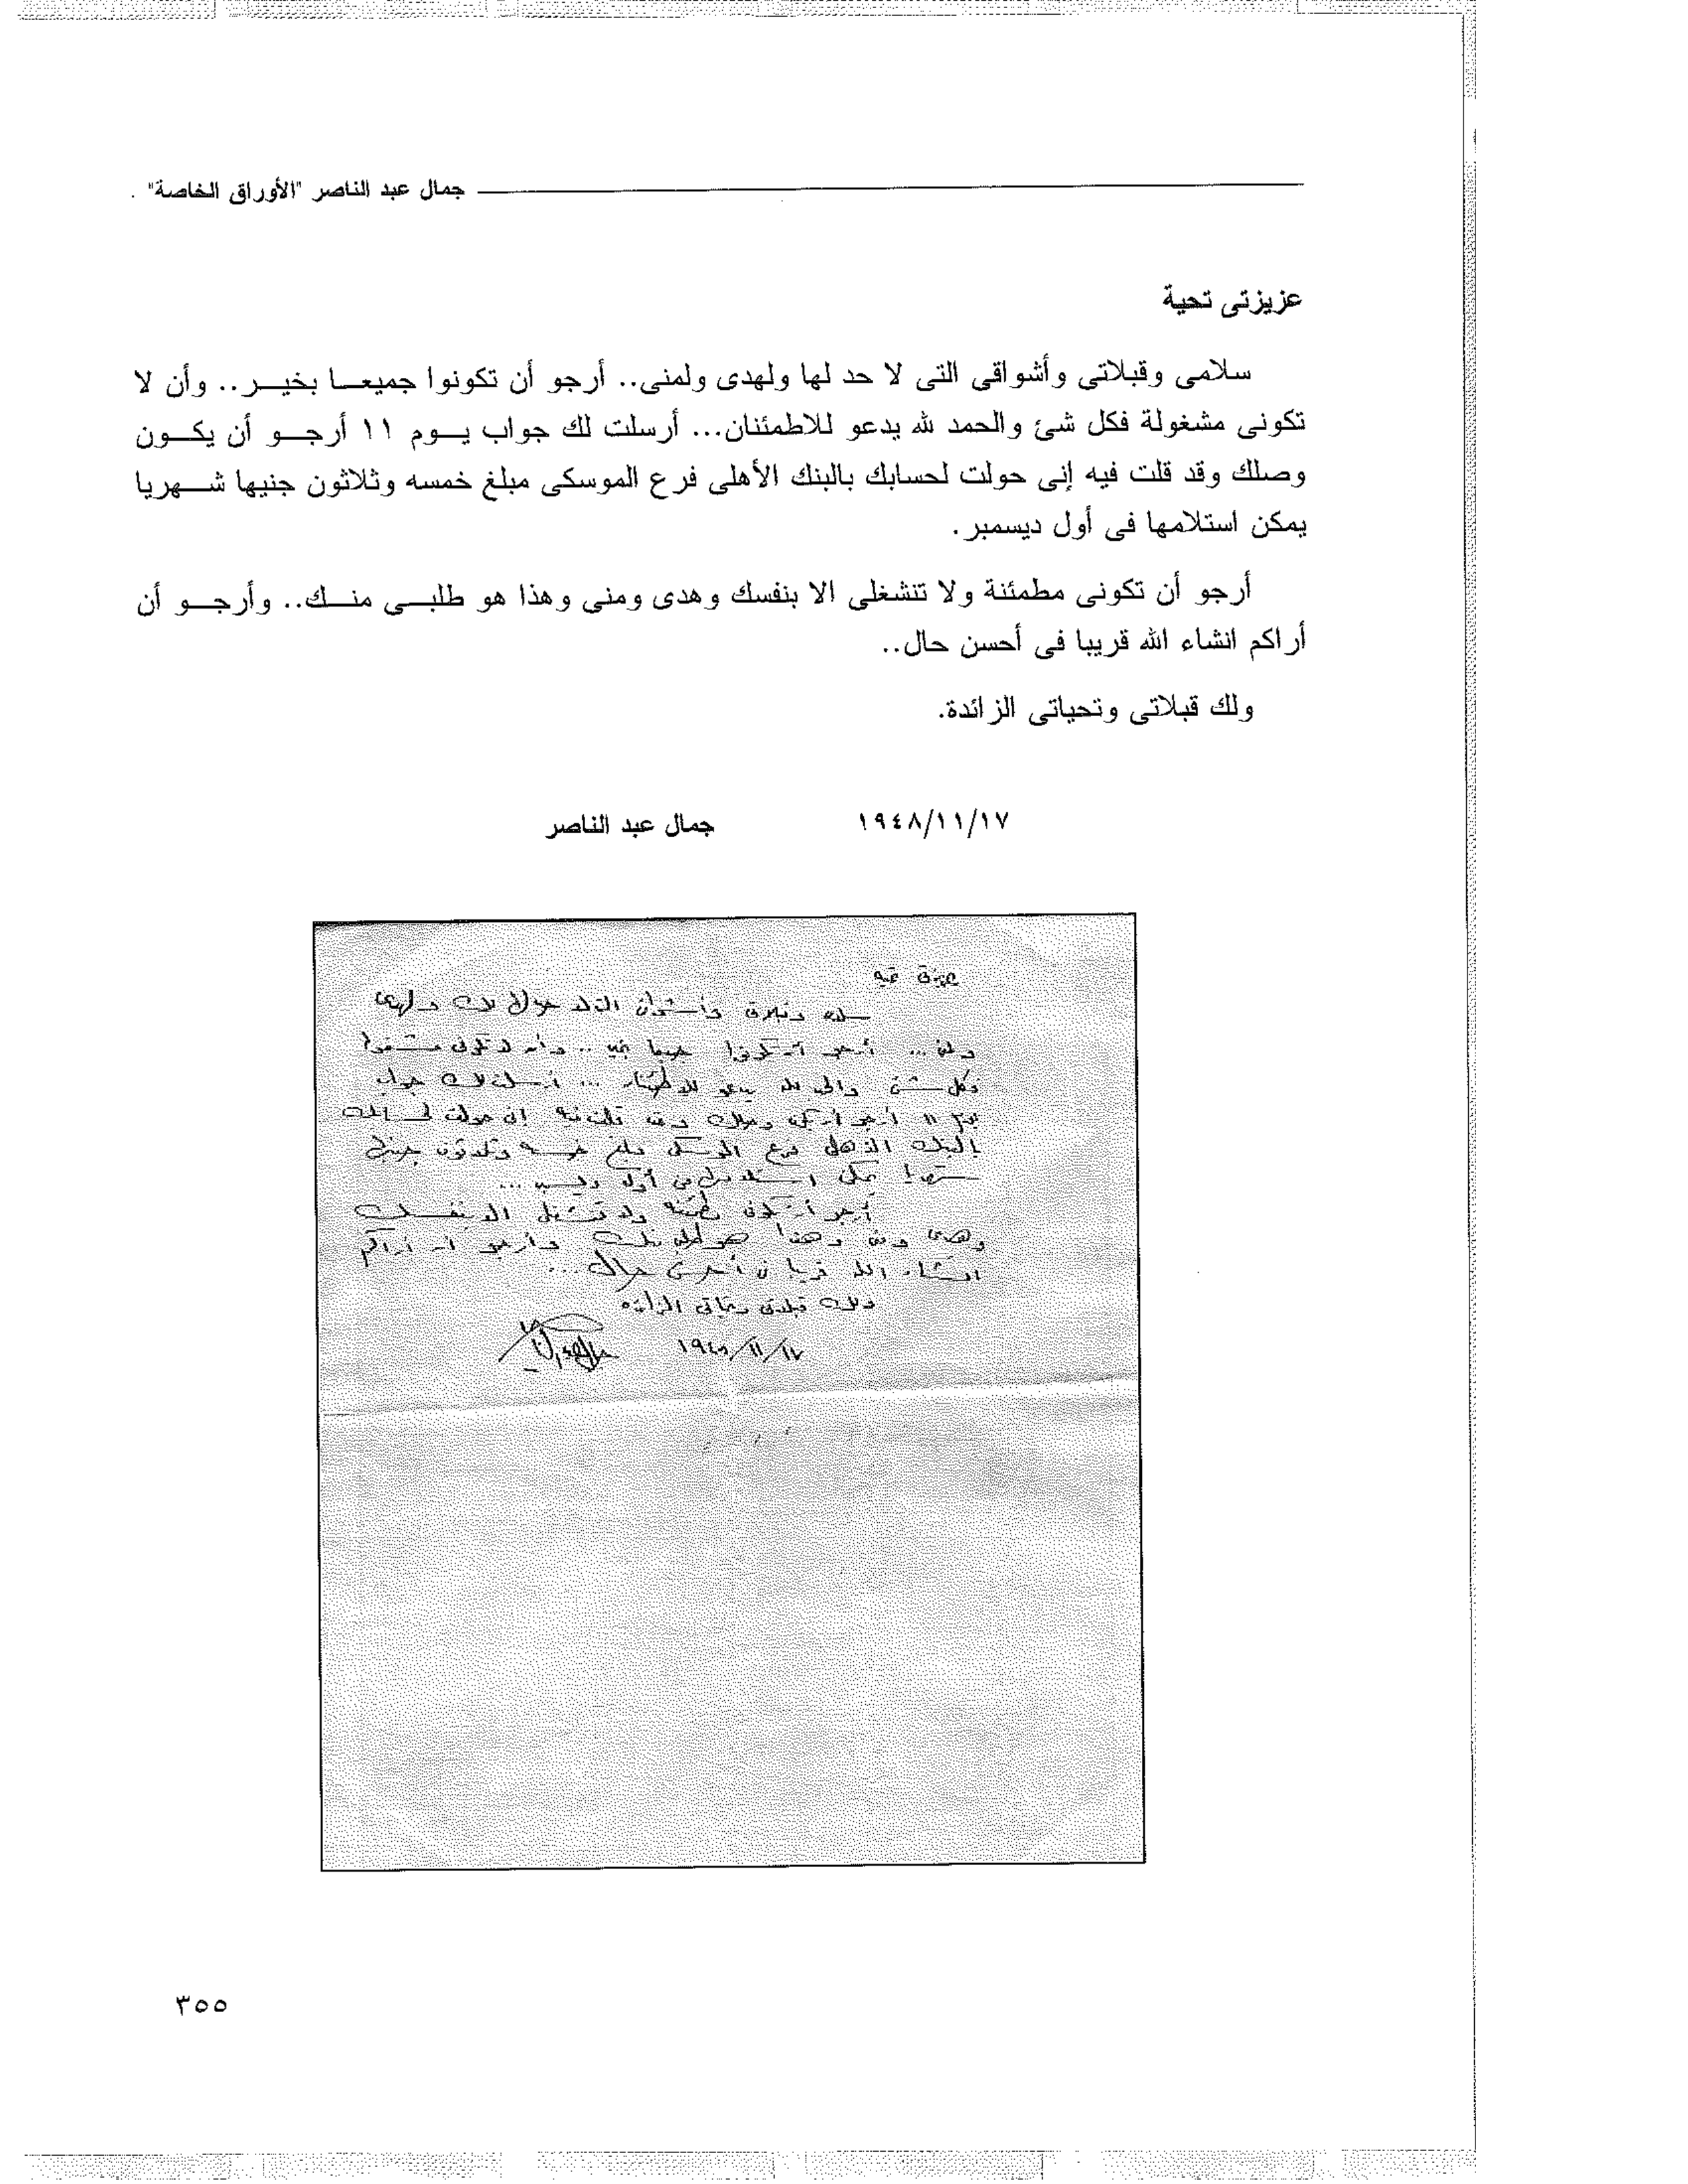 جمال عبد الناصر "الأوراق الخاصة" .
عزيزتى تحية
سلامى وقبلاتى وأشواقى التى لا حد لها ولهدى ولمنى.. أرجو أن تكونوا جميعا بخير.. وأن لا
تكونى مشغولة فكل شئ والحمد لله يدعو للاطمئنان... أرسلت لك جواب يوم ١١ أرجو أن يكون
وصلك وقد قلت فيه إنى حولت لحسابك بالبنك الأهلى فرع الموسكى مبلغ خمسه وثلاثون جنيها شهريا
يمكن استلامها فى أول ديسمبر.
أرجو أن تكونى مطمئنة ولا تنشغلى الا بنفسك وهدى ومنى وهذا هو طلبى منك.. وأرجو أن
أراكم انشاء الله قريبا فى أحسن حال..
ولك قبلاتى وتحياتى الزائدة.
١٩٤٨/١١/١٧ جمال عبد الناصر
عزيزتى تحية
سلامى وقبلاتى وأشواقى التى لا لك ولهدى
ولمنى ... أرجو أن تكونوا جميعا بخير .. وأن لا تكونى مشغولة
فكل شئ والحمد لله يدعو للاطمئنان ... أرسلت لك جواب
يوم ١١ أرجو أن يكون وصلك وقد قلت فيه إنى حولت لحسابك
بالبنك الأهلى فرع الموسكى مبلغ خمسه وثلاثون جنيها
شهريا يمكن استلامها فى أول ديسمبر ...
أرجو أن تكونى مطمئنة ولا تنشغلى الا بنفسك
وهدى ومنى وهذا هو طلبى منك وأرجو أن أراكم
انشاء الله قريبا فى أحسن حال ...
ولك قبلاتى وتحياتى الزائدة
١٩٤٨/١١/١٧
٣٥٥